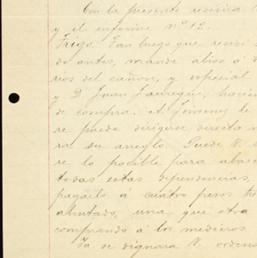 Con la presente recibira
y el informe nº 12.
Trigo. Tan luego que reciba
de antes, mande aviso á
rios del cañon, y especial
y D. Juan Jauregui, hacien
de compra. A. Jimenez le
se puede dirigirse directa
ra su arreglo. Puede V.
se lo posible para abas
todas estas dependencias,
pagarlo á cuatro pesos
ahutado, una que otra
comprando á los medieros.
Ya se dignara V. ordena